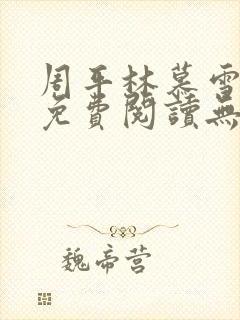 周平林慕雪
免費閱讀無
魏帝营